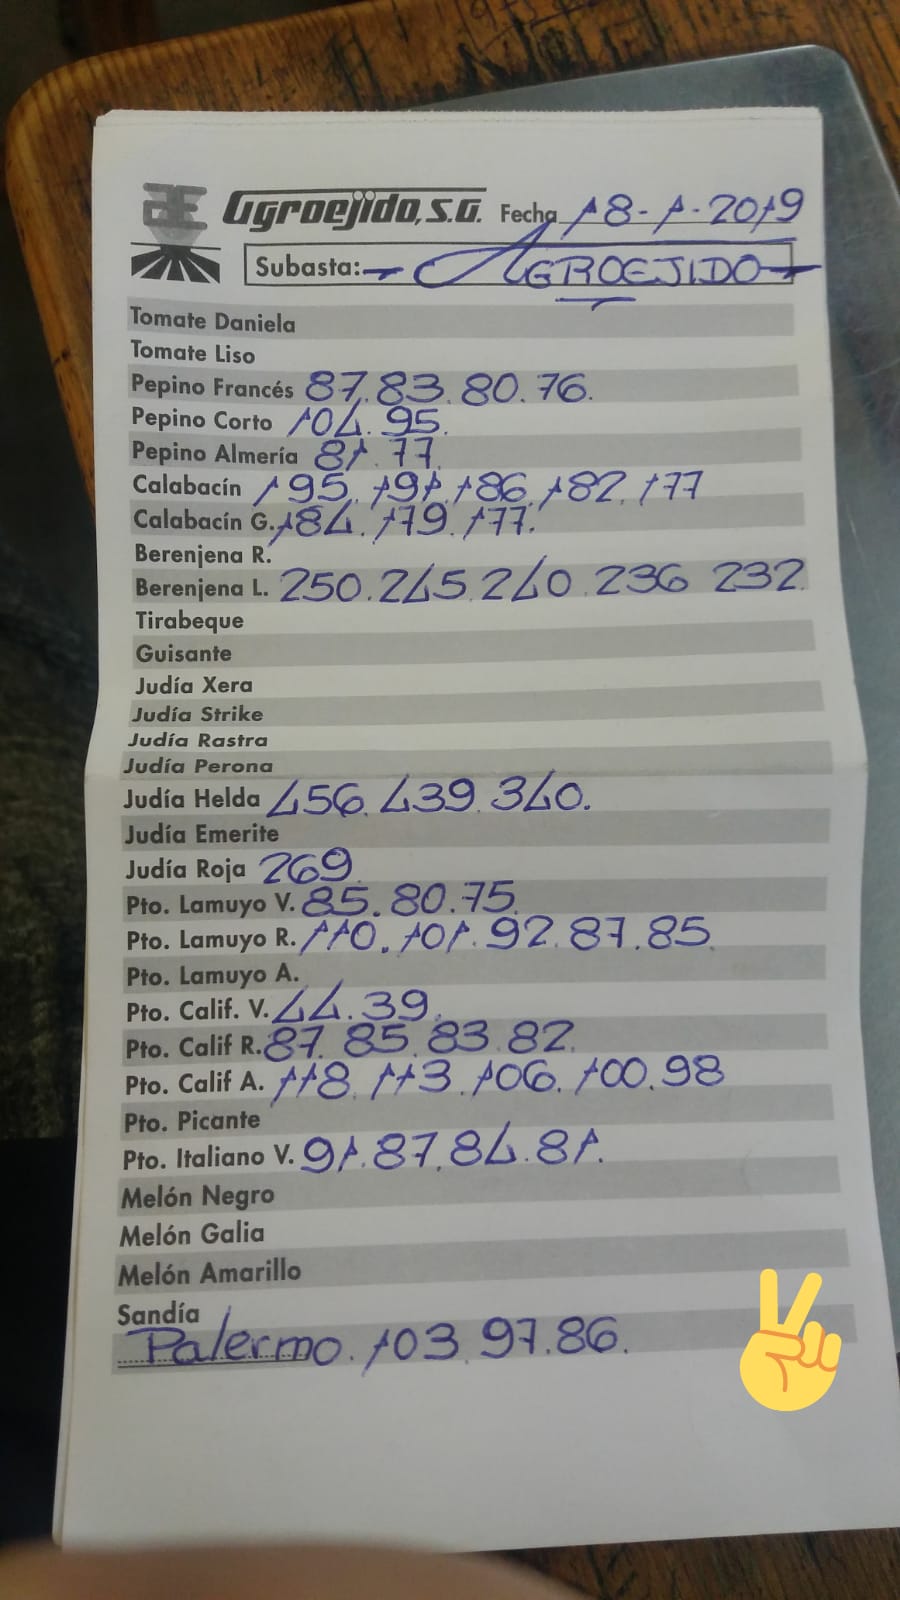 Agroejido, S.A. Fecha 18-1-2019
Subasta: AGROEJIDO
Tomate Daniela
Tomate Liso
Pepino Francés 87.83.80.76.
Pepino Corto 104.95.
Pepino Almería 81.77.
Calabacín 195.191.186.182.177
Calabacín G. 184.179.177.
Berenjena R.
Berenjena L. 250.245.240.236 232.
Tirabeque
Guisante
Judía Xera
Judía Strike
Judía Rastra
Judía Perona
Judía Helda 456.439.340.
Judía Emerite
Judía Roja 269.
Pto. Lamuyo V. 85.80.75.
Pto. Lamuyo R. 110.101.92.87.85.
Pto. Lamuyo A.
Pto. Calif. V. 44.39.
Pto. Calif R. 87.85.83.82.
Pto. Calif A. 118.113.106.100.98
Pto. Picante
Pto. Italiano V. 91.87.84.81.
Melón Negro
Melón Galia
Melón Amarillo
Sandía
Palermo. 103.97.86.